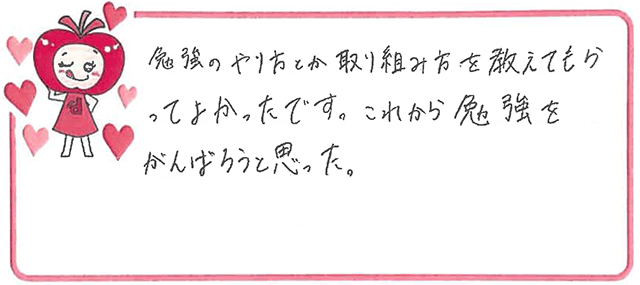 勉強のやり方とか取り組み方を教えてもら
ってよかったです。これから勉強を
がんばろうと思った。